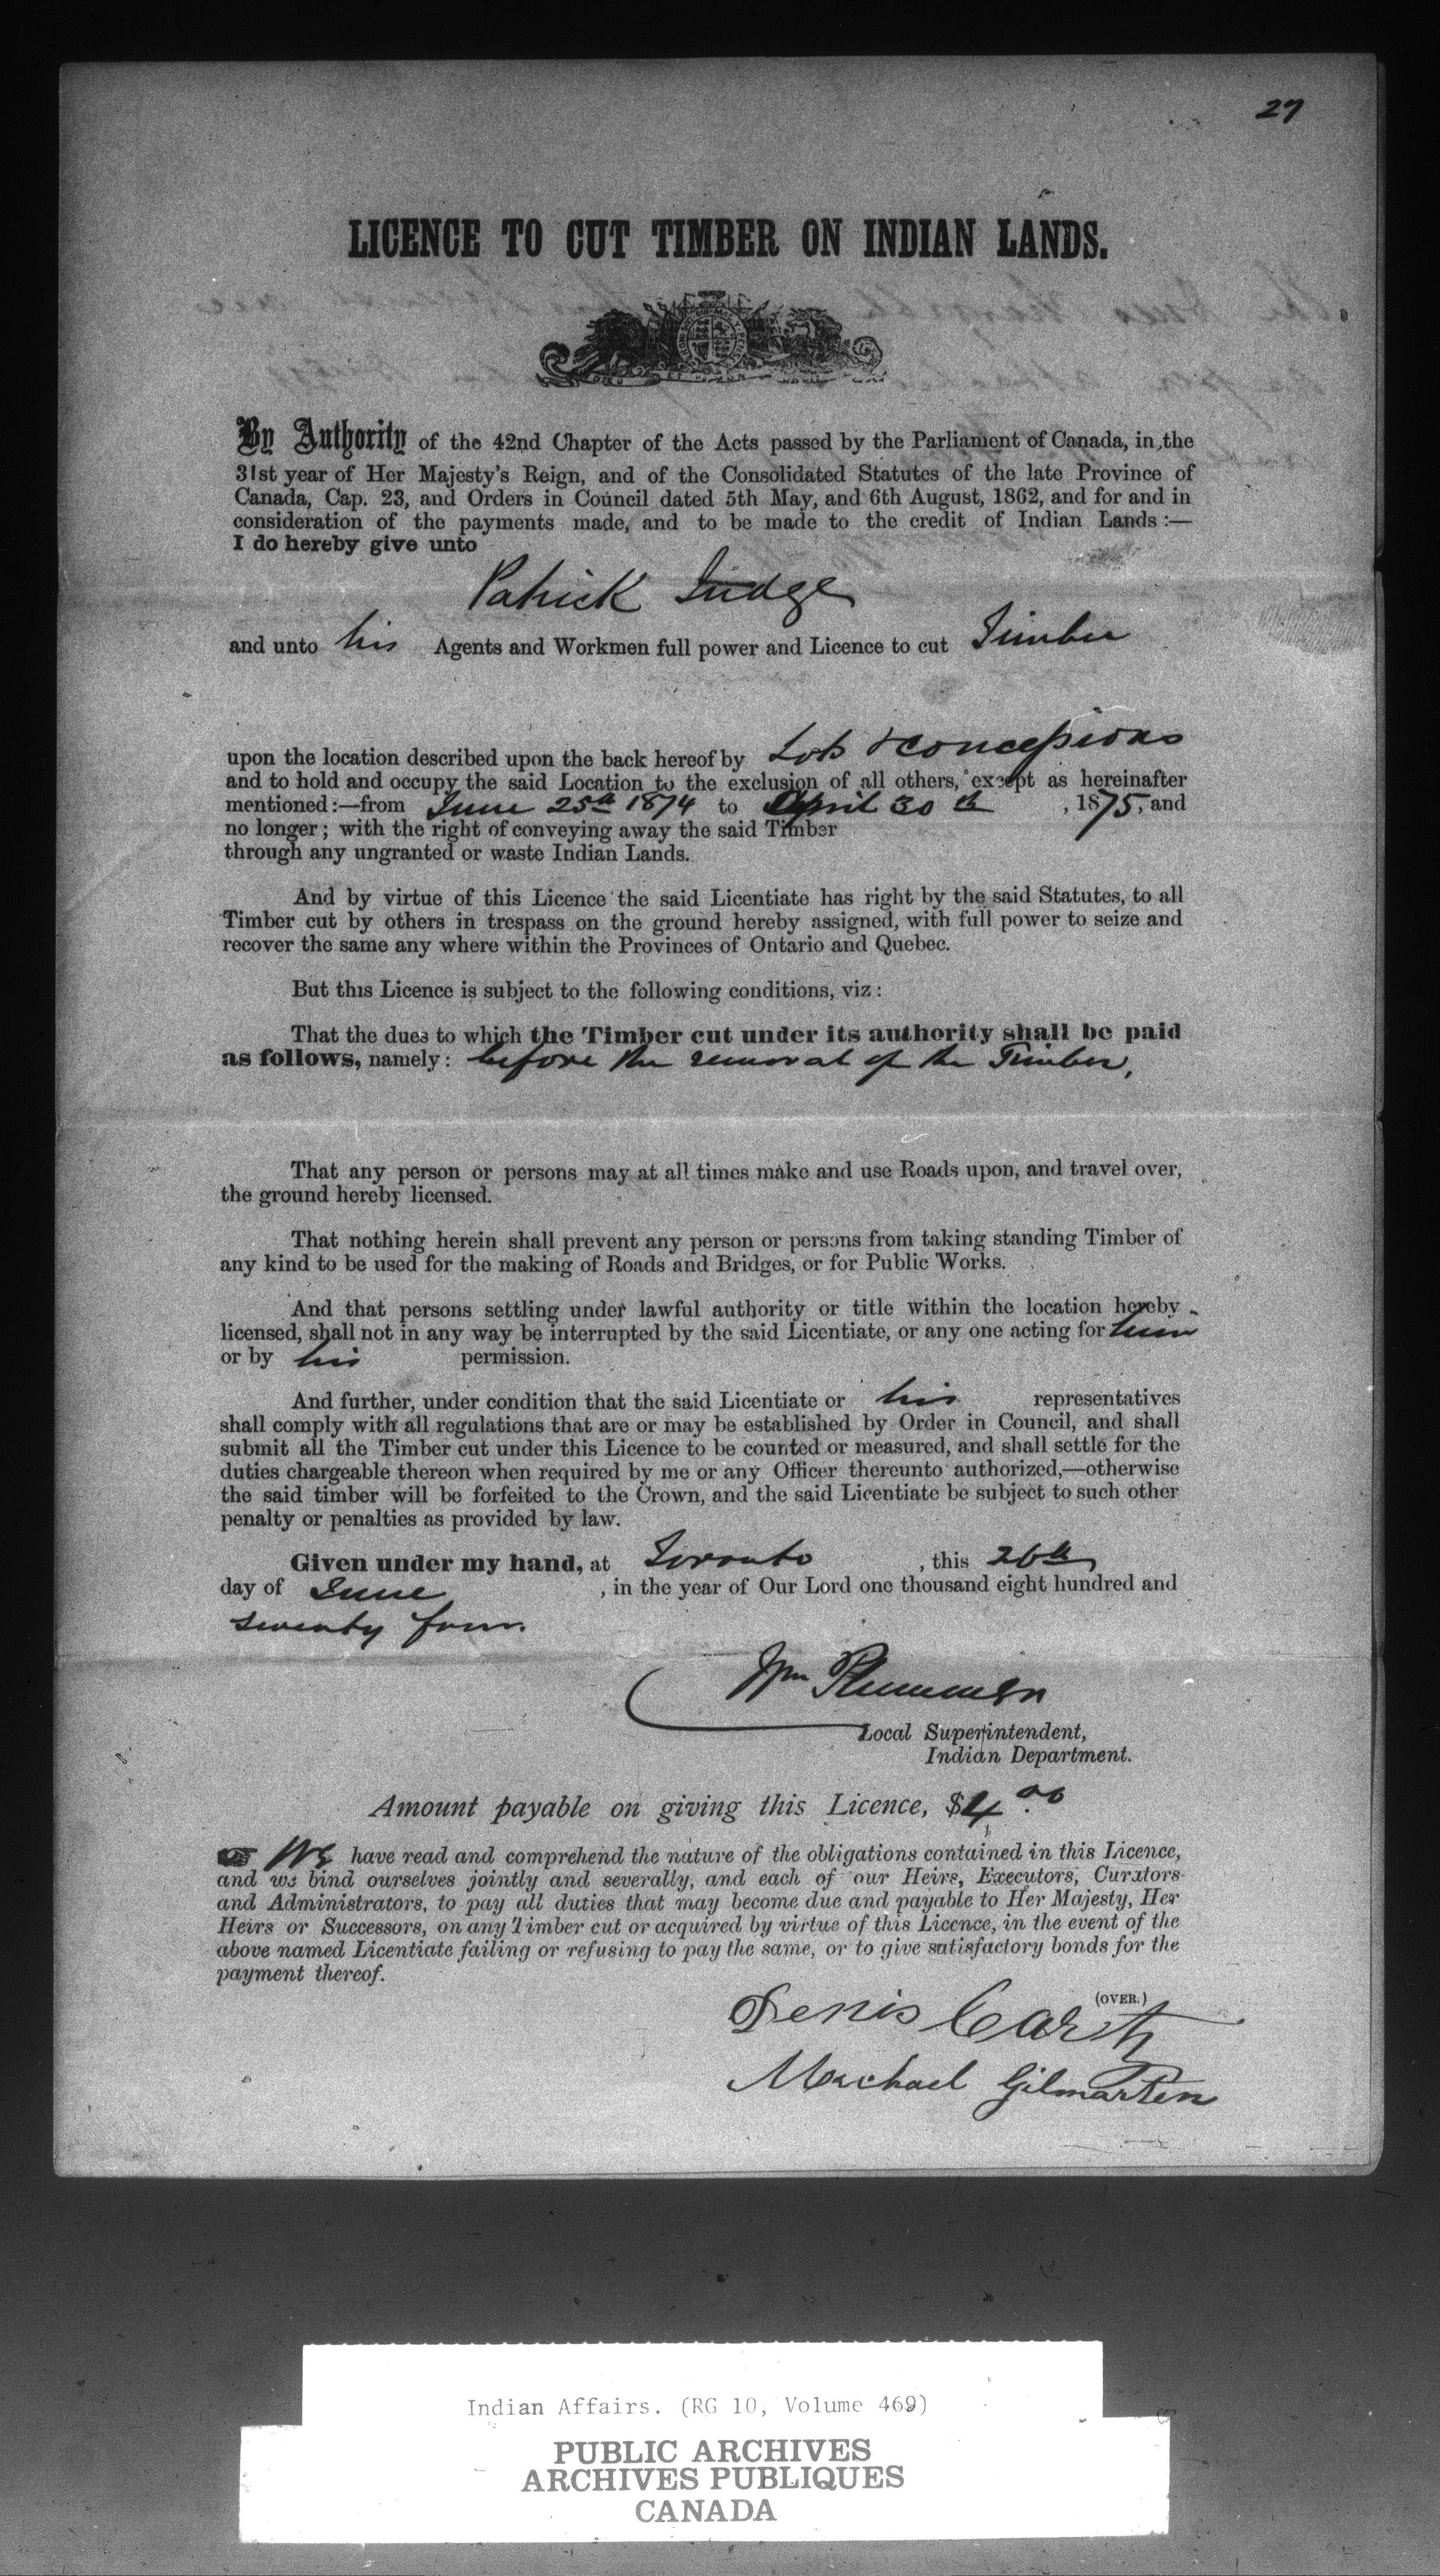 27
LICENCE TO CUT TIMBER ON INDIAN LANDS.
By Authority of the 42nd Chapter of the Acts passed by the Parliament of Canada, in the
31st year of Her Majesty's Reign, and of the Consolidated Statutes of the late Province of
Canada, Cap. 23, and Orders in Council dated 5th May, and 6th August, 1862, and for and in
consideration of the payments made, and to be made to the credit of Indian Lands:—
I do hereby give unto
Patrick Judge
and unto his Agents and Workmen full power and Licence to cut Timber
upon the location described upon the back hereof by Lots & Concessions
and to hold and occupy the said Location to the exclusion of all others, except as hereinafter
mentioned:—from June 25th 1874 to April 30th, 1875, and
no longer; with the right of conveying away the said Timber
through any ungranted or waste Indian Lands.
And by virtue of this Licence the said Licentiate has right by the said Statutes, to all
Timber cut by others in trespass on the ground hereby assigned, with full power to seize and
recover the same any where within the Provinces of Ontario and Quebec.
But this Licence is subject to the following conditions, viz:
That the dues to which the Timber cut under its authority shall be paid
as follows, namely: before the removal of the Timber.
That any person or persons may at all times make and use Roads upon, and travel over,
the ground hereby licensed.
That nothing herein shall prevent any person or persons from taking standing Timber of
any kind to be used for the making of Roads and Bridges, or for Public Works.
And that persons settling under lawful authority or title within the location hereby
licensed, shall not in any way be interrupted by the said Licentiate, or any one acting for him
or by his permission.
And further, under condition that the said Licentiate or his representatives
shall comply with all regulations that are or may be established by Order in Council, and shall
submit all the Timber cut under this Licence to be counted or measured, and shall settle for the
duties chargeable thereon when required by me or any Officer thereunto authorized,—otherwise
the said timber will be forfeited to the Crown, and the said Licentiate be subject to such other
penalty or penalties as provided by law.
Given under my hand, at Toronto, this 26th
day of June, in the year of Our Lord one thousand eight hundred and
seventy four.
Wm Plummer
Local Superintendent,
Indian Department.
Amount payable on giving this Licence, $4.00
We have read and comprehend the nature of the obligations contained in this Licence,
and we bind ourselves jointly and severally, and each of our Heirs, Executors, Curators
and Administrators, to pay all duties that may become due and payable to Her Majesty, Her
Heirs or Successors, on any Timber cut or acquired by virtue of this Licence, in the event of the
above named Licentiate failing or refusing to pay the same, or to give satisfactory bonds for the
payment thereof.
(OVER.)
Denis
Michael Gilmartin
Indian Affairs. (RG 10, Volume 469)
PUBLIC ARCHIVES
ARCHIVES PUBLIQUES
CANADA